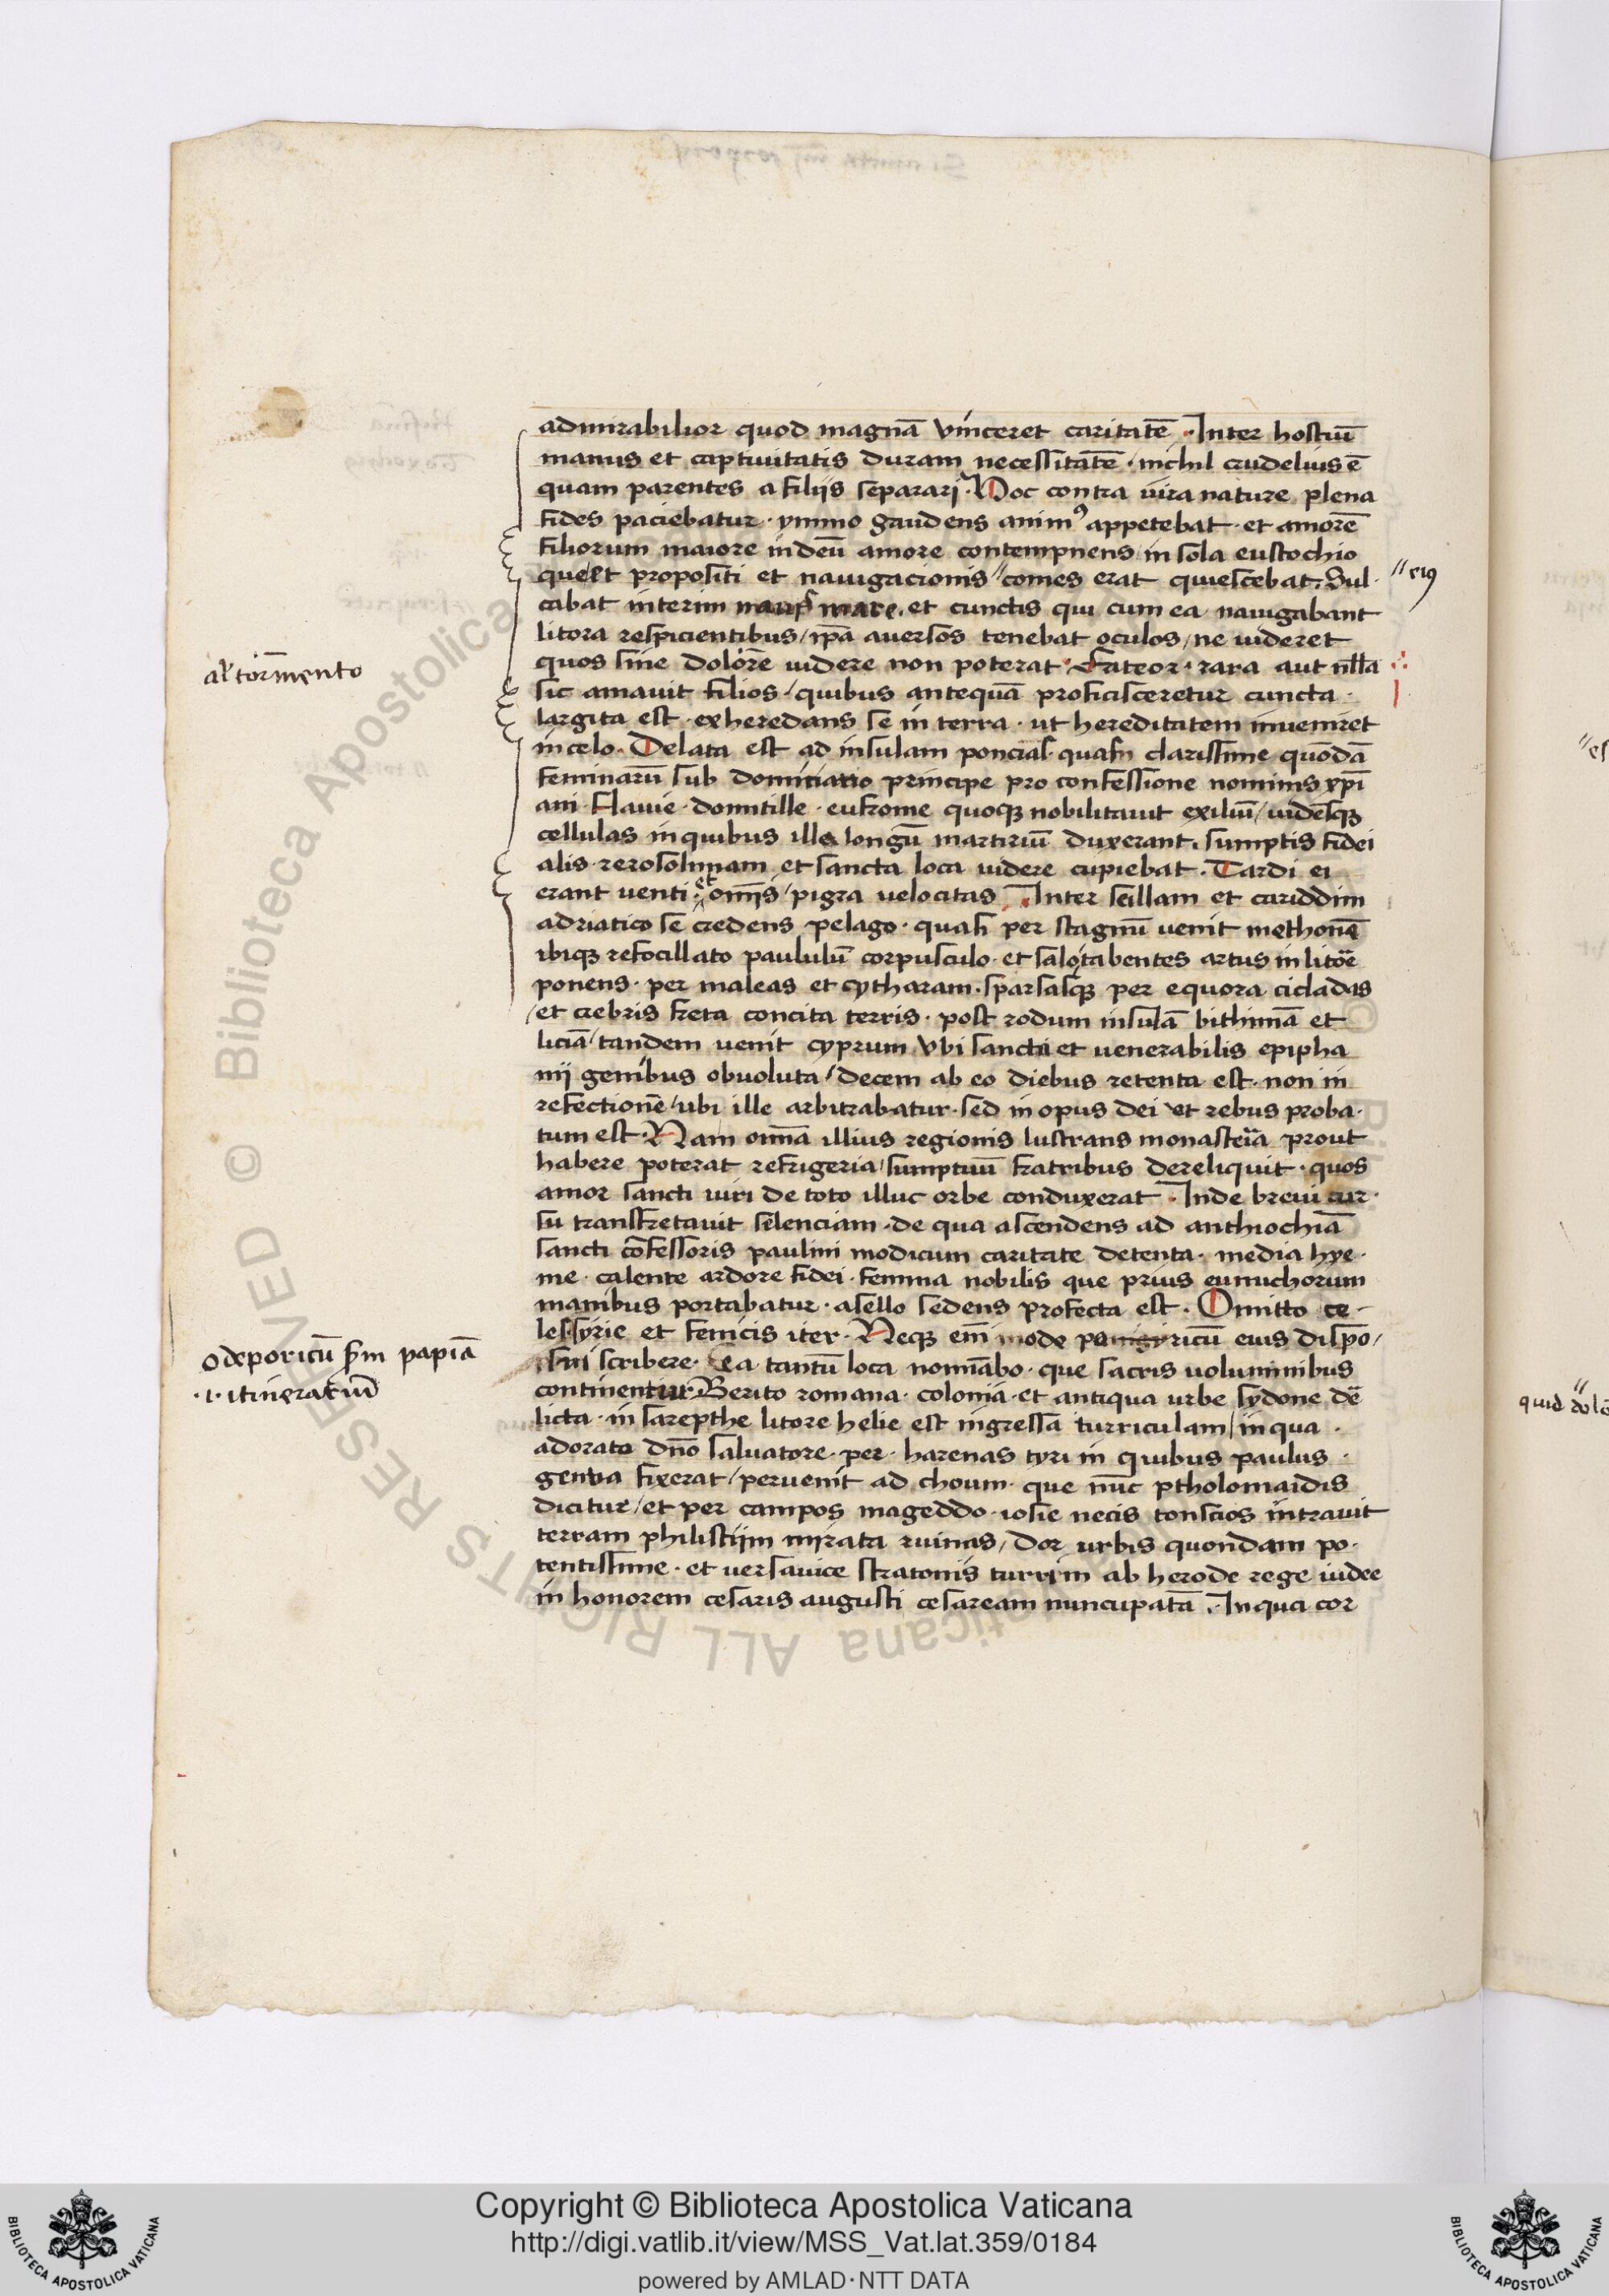 admirabilior quod magnā vinceret caritatē · Inter hostiū
manus et captiuitatis duram necessitatē · nichil crudelius ē
quam parentes a filijs separari · Hoc contra iura nature plena
fides paciebatur · ymmo gaudens animꝰ appetebat · et amorē
filiorum maiore in deū amore contempnens / in sola eustochio
que et propositi et nauigacionis // comes erat quiescebat · Sul·
// eiꝰ
cabat interim nauis mare · et cunctis qui cum ea nauigabant
litora respicientibus / ip̄a auersos tenebat oculos / ne uideret
quos sine dolore uidere non poterat · Fateor · rara aut nlła
al' tormento
sic amauit filios / quibus antequā proficisceretur cuncta ·
largita est · exheredans se in terra · ut hereditatem inueniret
in celo · Delata est ad insulam poncias · quam clarissime quondā
feminarū sub domiciano principe pro confessione nominis xp̄i
ani · flauie · domitille · eufrome quoqꝫ nobilitauit exiliū / uidēsqꝫ
cellulas in quibus illa longū martiriū duxerant · sumptis fidei
alis · rerosolimam et sancta loca uidere cupiebat · Tardi ei
erant uenti · et om̄is / pigra velocitas · Inter scillam et cariddim
adriatico se credens pelago · quasi per stagnū uenit methonē
ibiqꝫ refocillato paululū corpusculo · et salo tabentes artus in litore
ponens · per maleas et cytharam · sparsasqꝫ per equora cicladas
/ et crebris freta concita terris · post rodum insulā bithiniā et
liciā / tandem uenit cyprum vbi sancti et uenerabilis epipha
nij genibus obuoluta / decem ab eo diebus retenta est · non in
refectionē / ubi ille arbitrabatur · sed in opus dei ut rebus proba·
tum est · Nam omīa illius regionis lustrans monasteria prout
habere poterat refrigeria / sumptuū fratribus dereliquit · quos
amor sancti uiri de toto illuc orbe conduxerat · Inde breui cur·
su transfretauit selenciam · de qua ascendens ad anthiochiā
sancti cōfessoris paulini modicum caritate detenta · media hye·
me · calente ardore fidei · femina nobilis que prius eunuchorum
manibus portabatur · asello sedens profecta est · Omitto ce·
lessyrie et fenicis iter · Neqꝫ em̄ modo panigyricū eius dispo /
odeporicū ẜm papiā
·i· itinerariū
sui scribere · Ea tantū loca nominabo · que sacris uoluminibus
continentur · Berito romana · colonia · et antiqua urbe sydone de
licta · in sarepthe litore helie est ingressa turriculam / in qua ·
adorato dn̄o saluatore · per · harenas tyri in quibus paulus ·
genua fixerat / peruenit ad choum · que nūc ptholomaidis
dicitur / et per campos mageddo · iosie necis conscios intrauit
terram philistijm mirata ruinas / dor urbis quondam po·
tentissime · et uersauice stratonis turrim ab herode rege iudee
in honorem cesaris augusti cesaream nuncupatā · In qua cor
Copyright © Biblioteca Apostolica Vaticana
http://digi.vatlib.it/view/MSS_Vat.lat.359/0184
powered by AMLAD·NTT DATA
BIBLIOTECA APOSTOLICA VATICANA
BIBLIOTECA APOSTOLICA VATICANA